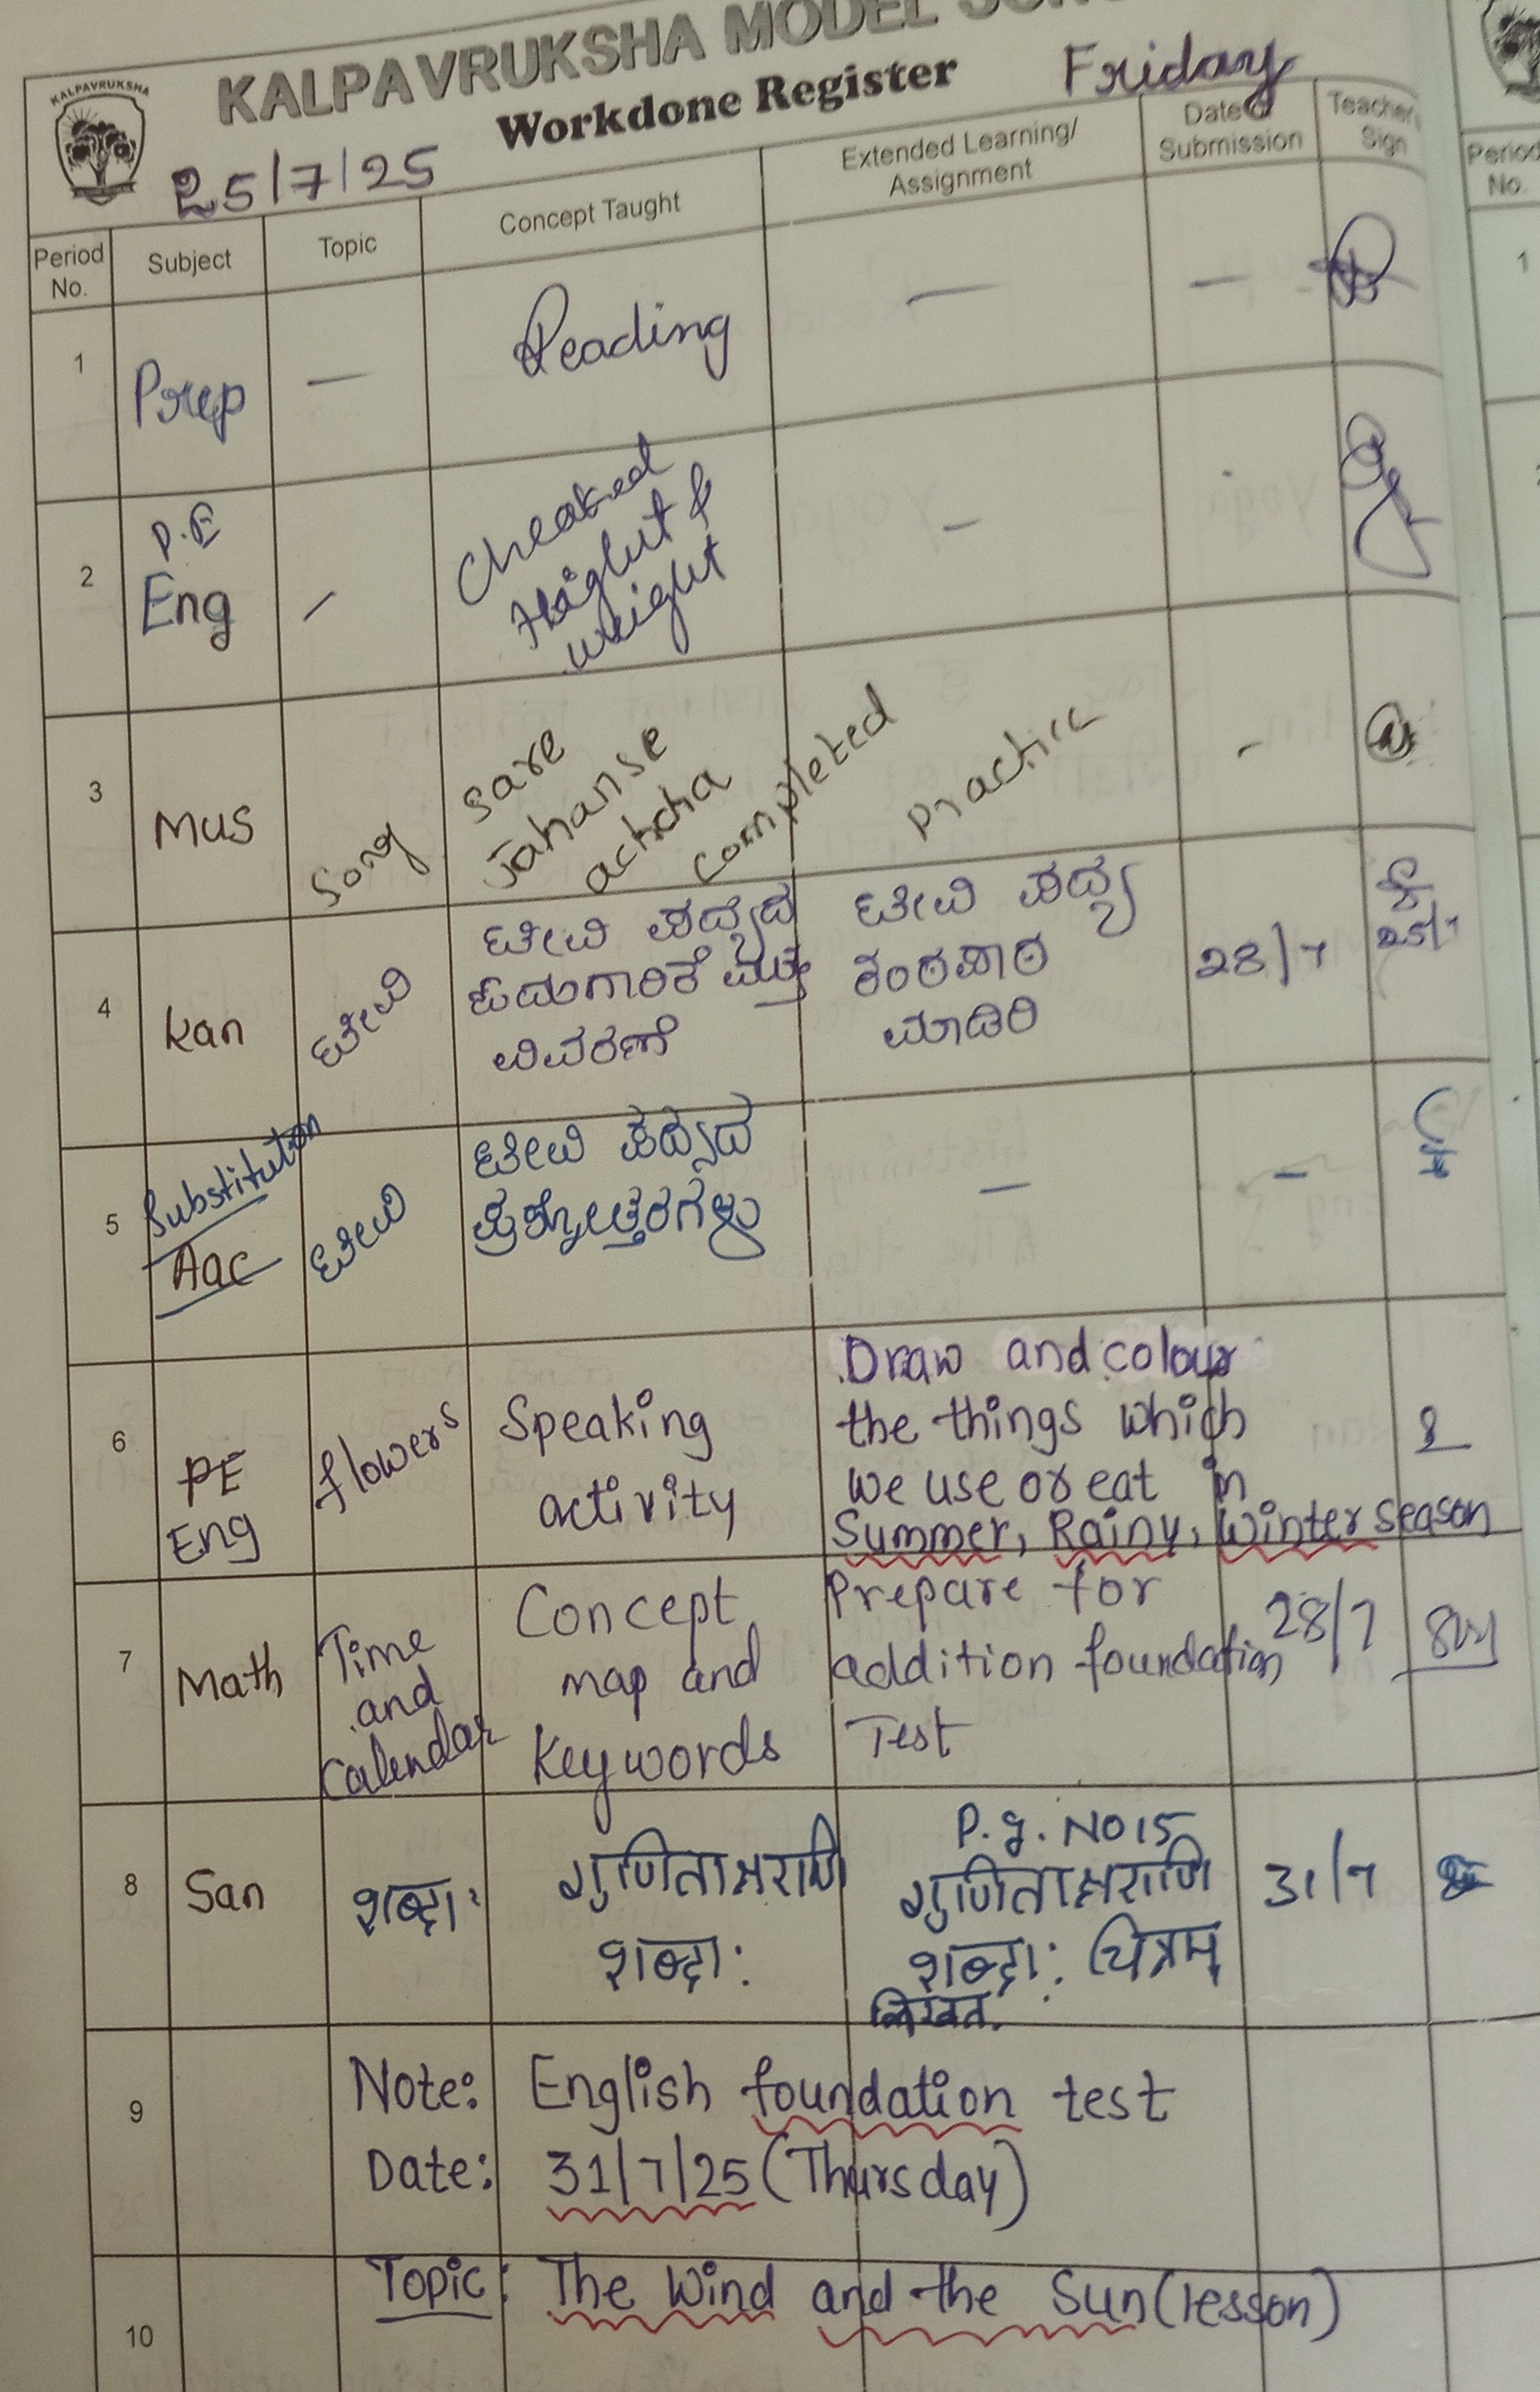 KALPAVRUKSHA MODEL
KALPAVRUKSHA
Workdone Register
Friday
25/7/25
Period No.
Subject
Topic
Concept Taught
Extended Learning/
Assignment
Date of
Submission
Teacher
Sign
1
Prep
—
Reading
—
—
2
P.E
Eng
—
Cheaked
Height &
weight
—
3
Mus
Song
Sare
Jahanse
achcha
completed
Practice
-
4
Kan
ಟೀವಿ
ಟೀವಿ ಪದ್ಯದ
ಹಾಡುಗಾರಿಕೆ ಮತ್ತು
ವಿವರಣೆ
ಟೀವಿ ಪದ್ಯ
ಕಂಠಪಾಠ
ಮಾಡಿರಿ
28/7
25/7
5
Substitution
Aac
ಟೀವಿ
ಟೀವಿ ಪದ್ಯದ
ಪ್ರಶ್ನೋತ್ತರಗಳು
—
—
6
PE
Eng
flowers
Speaking
activity
Draw and colour
the things which
we use or eat in
Summer, Rainy, Winter season
7
Math
Time
and
Calendar
Concept
map and
Keywords
Prepare for
addition foundation
Test
28/7
8
San
शब्दाः
गुणिताक्षराणि
शब्दाः
P.g. No 15
गुणिताक्षराणि
शब्दाः चित्रम्
लिखत.
31/7
9
Note: English foundation test
Date: 31/7/25 (Thursday)
10
Topic: The Wind and the Sun (lesson)
Period
No.
1